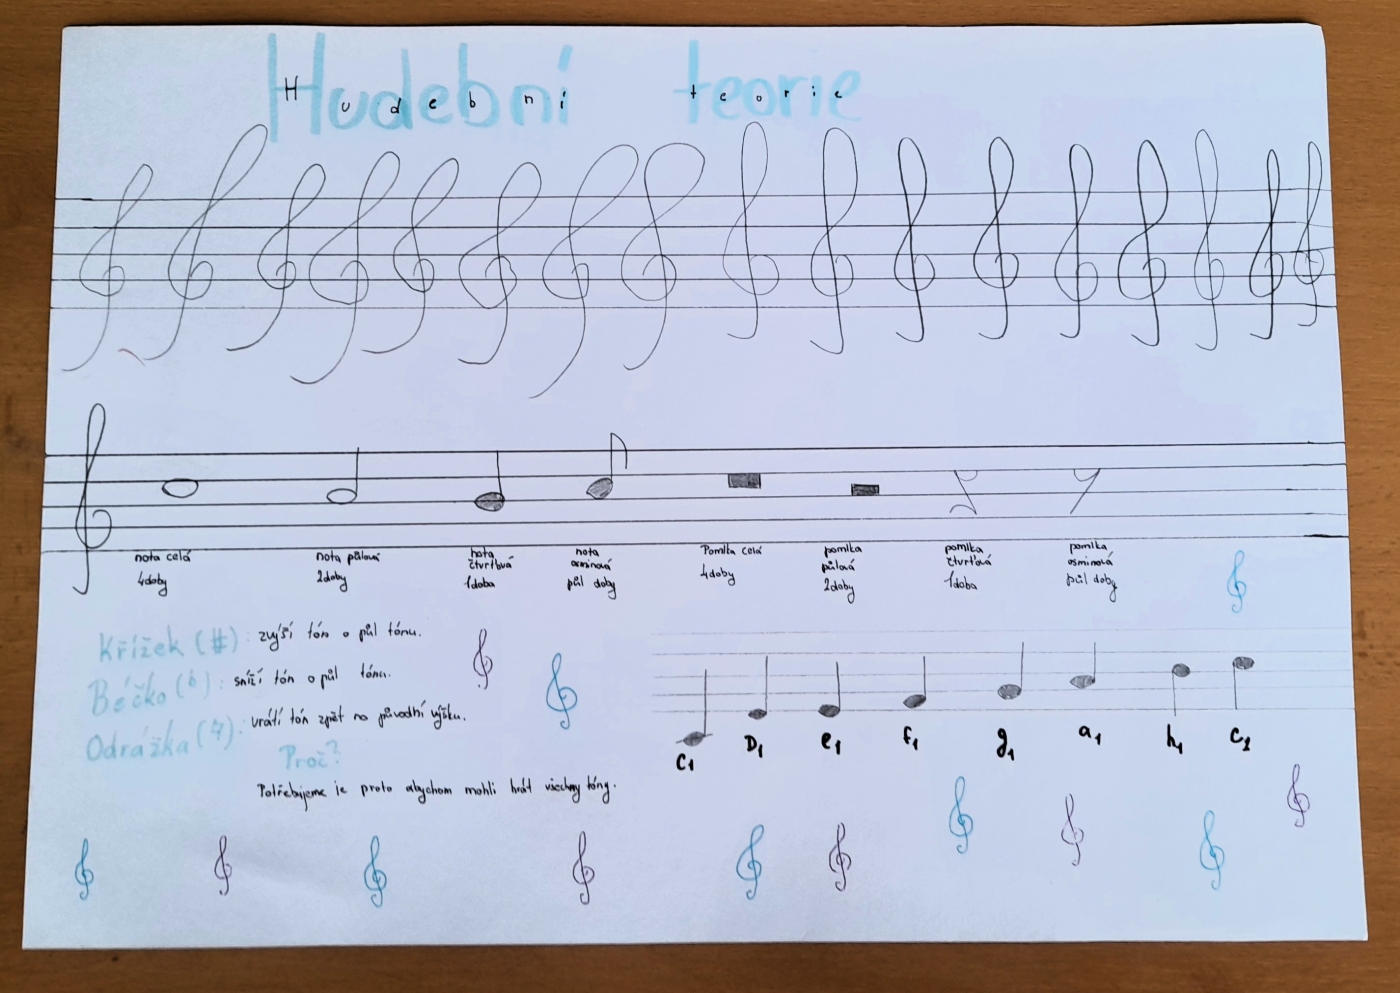 Hudební teorie
Hudební teorie
nota celá
4doby
nota půlová
2doby
nota
čtvrťová
1doba
nota
osminová
půl doby
Pomlka celá
4doby
pomlka
půlová
2doby
pomlka
čtvrťová
1doba
pomlka
osminová
půl doby
Křížek (#): zvýší tón o půl tónu.
Béčko (b): sníží tón o půl tónu.
Odrážka (♮): vrátí tón zpět na původní výšku.
Proč?
Potřebujeme je proto abychom mohli hrát všechny tóny.
C1 D1 e1 f1 g1 a1 h1 c2